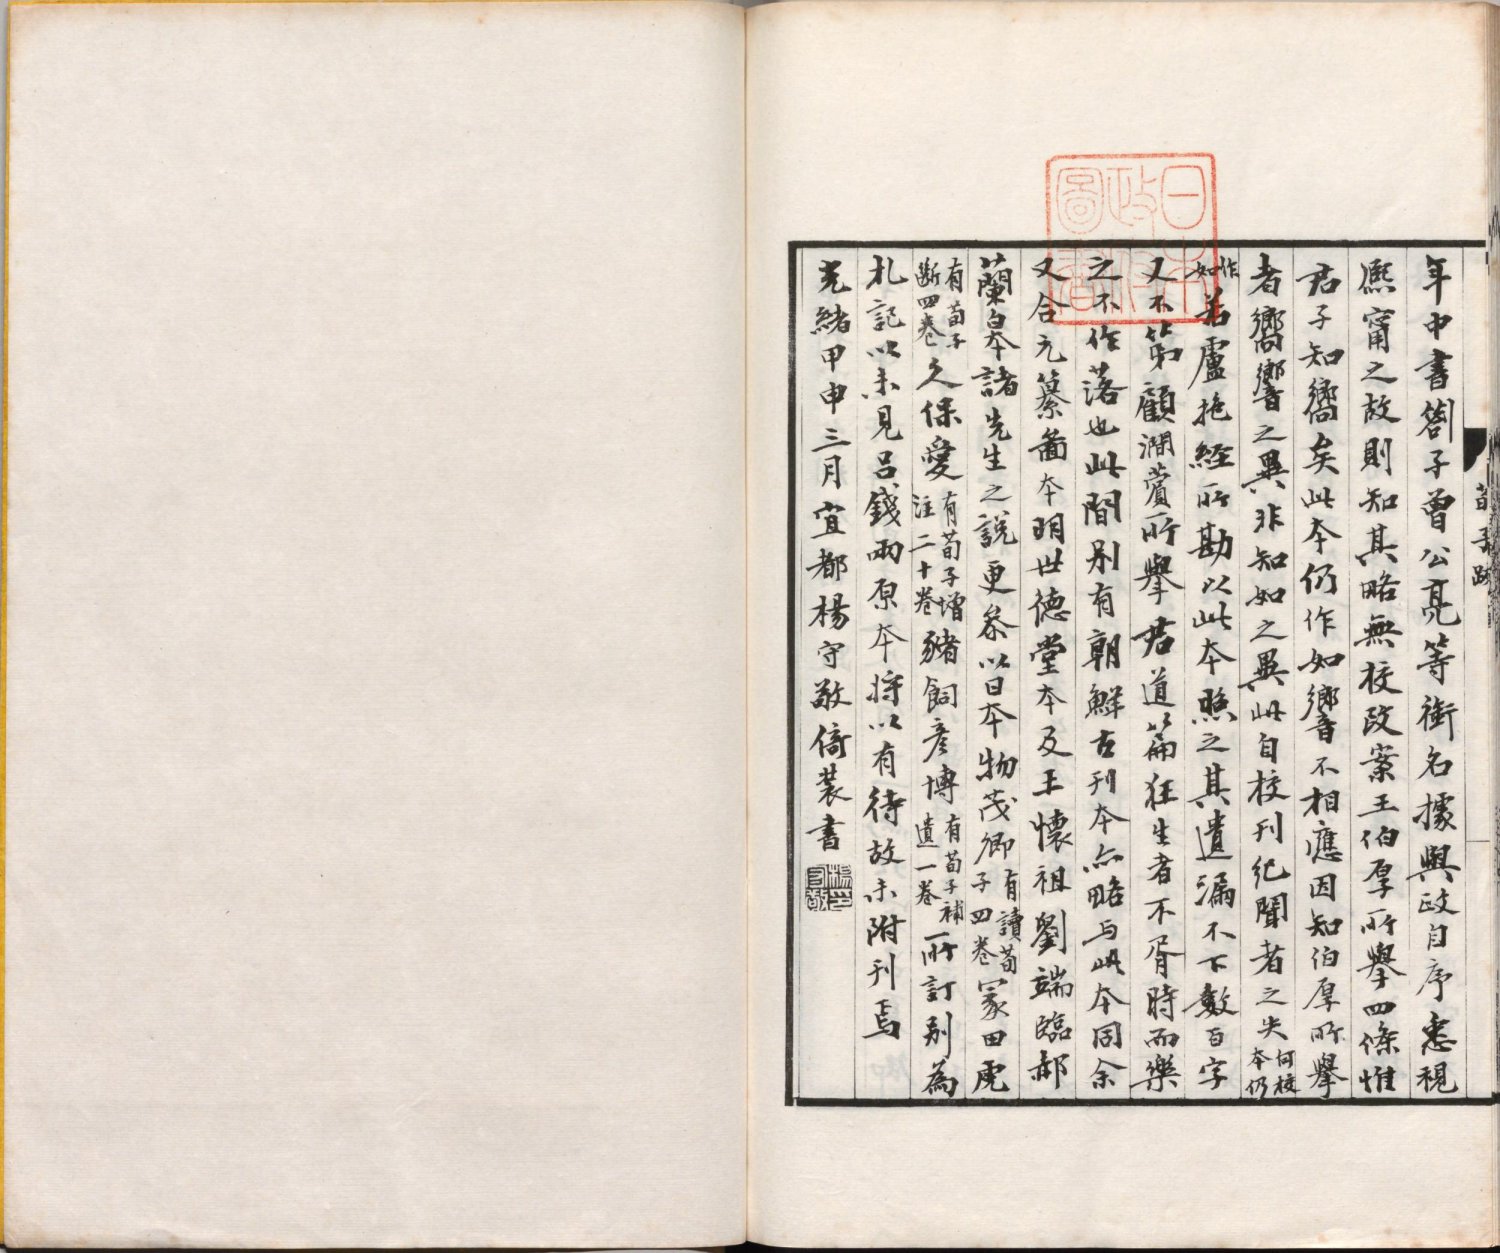 年中書劄子曾公亮等銜名據與政自序悉視
熙甯之故則知其略無校改案王伯厚所舉四條惟
君子知嚮矣此本仍作如響不相應因知伯厚所舉
者嚮響之異非知如之異此自校刊紀聞者之失何校本仍
作如若盧抱經所勘以此本照之其遺漏不下數百字
又不第顧澗薲所舉君道篇狂生者不胥時而樂
之不作落也此間別有朝鮮古刊本亦略與此本同余
又合元纂圖本明世德堂本及王懷祖劉端臨郝
蘭皋本諸先生之說更參以日本物茂卿有讀荀子四卷冢田虎
有荀子斷四卷久保愛有荀子增注二十卷豬飼彥博有荀子補遺一卷所訂別為
札記以未見呂錢兩原本將以有待故未附刊焉
光緒甲申三月宜都楊守敬倚裝書
楊守敬印
荀子跋
日本政府圖書